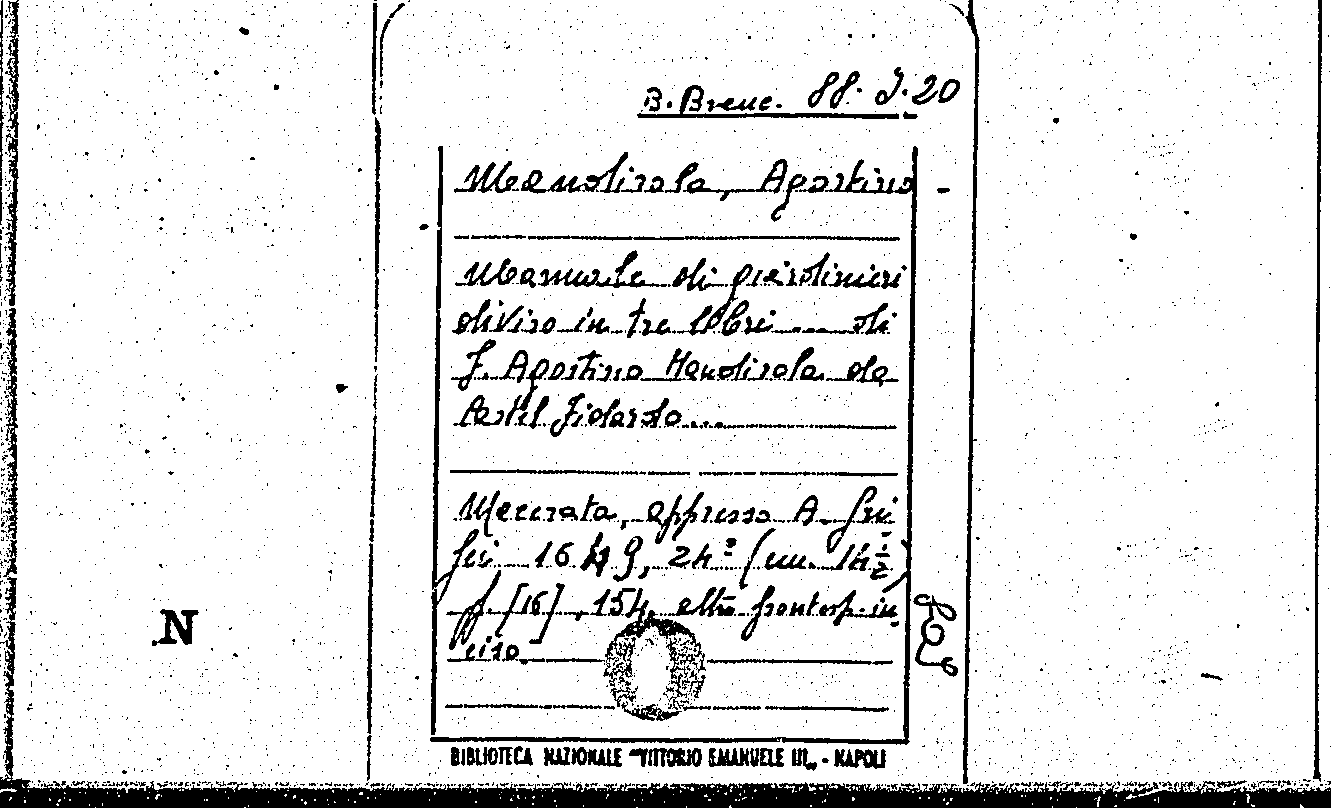 B. Branc. 88. I. 20
Mandirola, Agostino -
Manuale di giardinieri
diviso in tre libri ... di
F. Agostino Mandirola da
Castel Fidardo ...
Macerata, appresso A. Gri
sei 1649, 24º (cm. 14½)
p. [16], 154, altro frontesp. in
ciso.
N
BIBLIOTECA NAZIONALE "VITTORIO EMANUELE III„ - NAPOLI